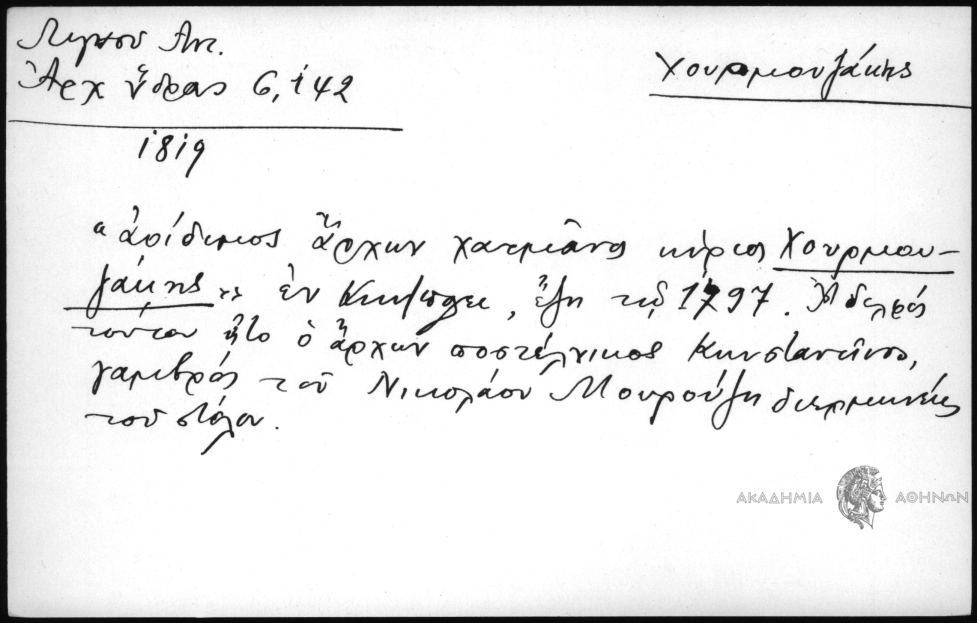 Λιγνού Αντ.
Ἀρχ Ὕδρας 6, 142
Χουρμουζάκης
1819
"ἀοίδιμος ἄρχων χατμᾶνος κύριος Χουρμου-
ζάκης" ἐν Κων/πόλει, ἔζη τῷ 1797. Ἀδελφός
τούτου ἦτο ὁ ἄρχων ποστέλνικος Κωνσταντῖνος,
γαμβρός τοῦ Νικολάου Μουρούζη διερμηνέως
τοῦ στόλου.
ΑΚΑΔΗΜΙΑ ΑΘΗΝΩΝ